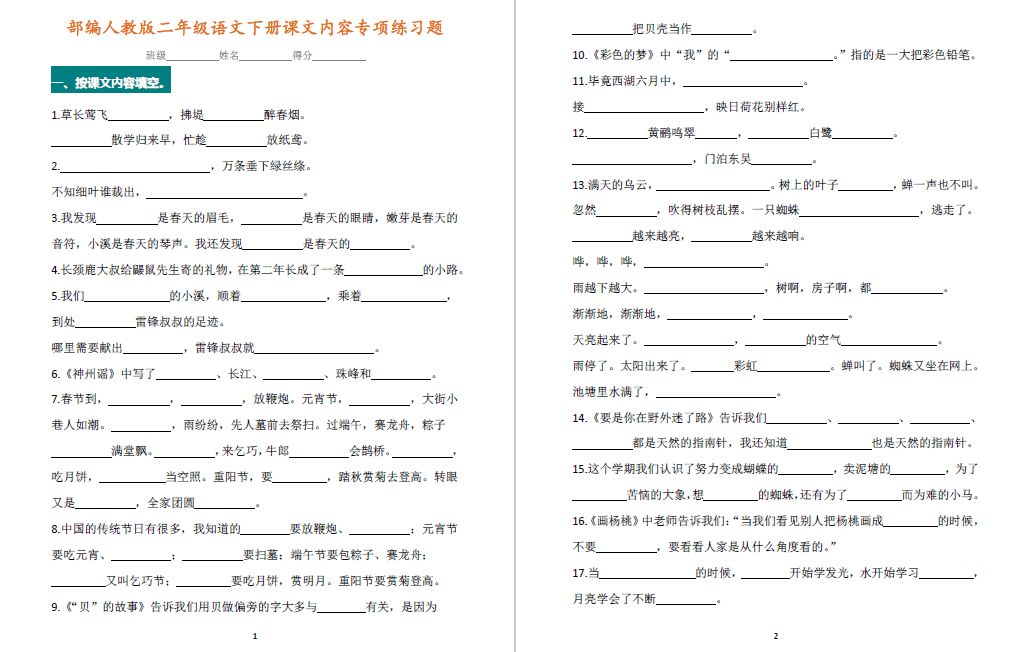 部编人教版二年级语文下册课文内容专项练习题
班级__________姓名__________得分__________
一、按课文内容填空。
1.草长莺飞__________，拂堤__________醉春烟。
__________散学归来早，忙趁__________放纸鸢。
2.________________________，万条垂下绿丝绦。
不知细叶谁裁出，________________________。
3.我发现__________是春天的眉毛，__________是春天的眼睛，嫩芽是春天的
音符，小溪是春天的琴声。我还发现__________是春天的__________。
4.长颈鹿大叔给鼹鼠先生寄的礼物，在第二年长成了一条____________的小路。
5.我们______________的小溪，顺着______________，乘着______________，
到处__________雷锋叔叔的足迹。
哪里需要献出__________，雷锋叔叔就____________________。
6.《神州谣》中写了__________、长江、__________、珠峰和__________。
7.春节到，__________，__________，放鞭炮。元宵节，__________，大街小
巷人如潮。__________，雨纷纷，先人墓前去祭扫。过端午，赛龙舟，粽子
__________满堂飘。__________，来乞巧，牛郎__________会鹊桥。__________，
吃月饼，__________当空照。重阳节，要_________，踏秋赏菊去登高。转眼
又是__________，全家团圆__________。
8.中国的传统节日有很多，我知道的________要放鞭炮、__________；元宵节
要吃元宵、__________；__________要扫墓；端午节要包粽子、赛龙舟；
_________又叫乞巧节；_________要吃月饼，赏明月。重阳节要赏菊登高。
9.《“贝”的故事》告诉我们用贝做偏旁的字大多与________有关，是因为
1
__________把贝壳当作__________。
10.《彩色的梦》中“我”的“________________。”指的是一大把彩色铅笔。
11.毕竟西湖六月中，____________________。
接____________________，映日荷花别样红。
12.__________黄鹂鸣翠_______，__________白鹭__________。
____________________，门泊东吴__________。
13.满天的乌云，__________________。树上的叶子_________，蝉一声也不叫。
忽然__________，吹得树枝乱摆。一只蜘蛛____________________，逃走了。
__________越来越亮，__________越来越响。
哗，哗，哗，____________________。
雨越下越大。____________________，树啊，房子啊，都____________。
渐渐地，渐渐地，______________，______________。
天亮起来了。_______________，__________的空气________________。
雨停了。太阳出来了。_______彩虹____________。蝉叫了。蜘蛛又坐在网上。
池塘里水满了，____________________。
14.《要是你在野外迷了路》告诉我们__________、__________、__________、
__________都是天然的指南针，我还知道______________也是天然的指南针。
15.这个学期我们认识了努力变成蝴蝶的_________，卖泥塘的_________，为了
_________苦恼的大象,想_________的蜘蛛,还有为了_________而为难的小马。
16.《画杨桃》中老师告诉我们：“当我们看见别人把杨桃画成_________的时候，
不要__________，要看看人家是从什么角度看的。”
17.当________________的时候，________开始学发光，水开始学习_________，
月亮学会了不断__________。
2